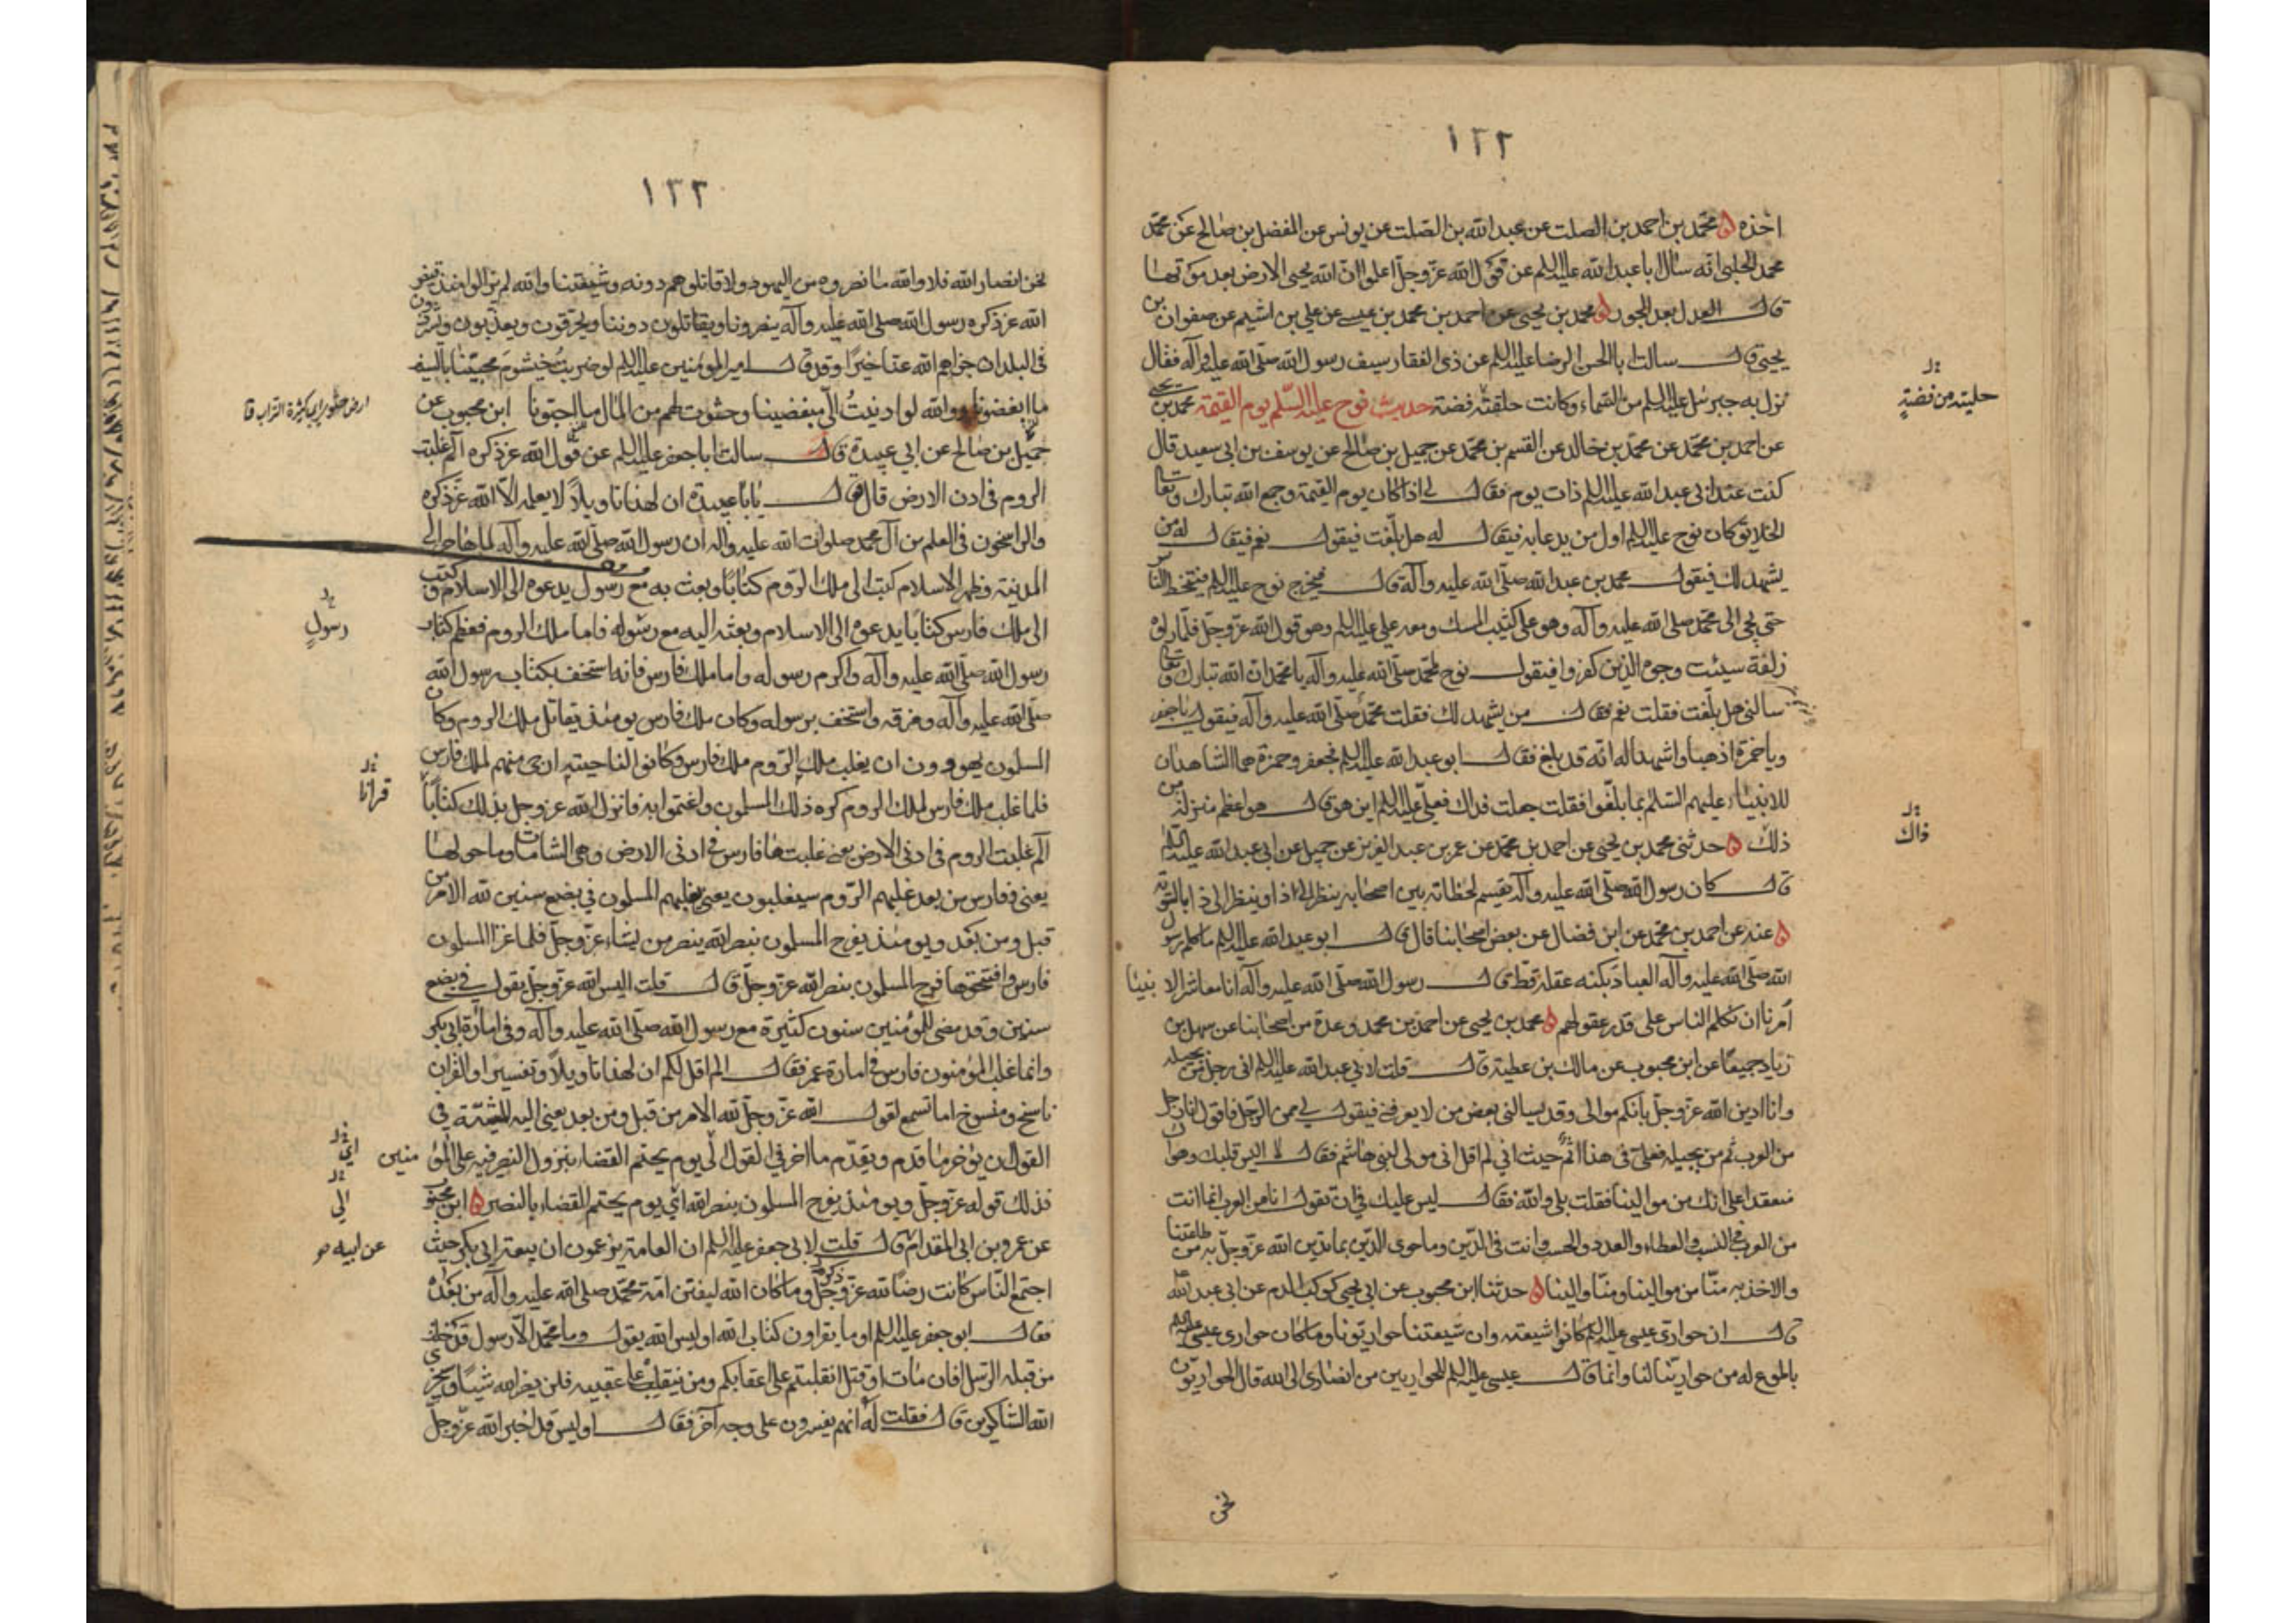 ١٣٢
اخذه محمد بن احمد بن الصلت عن عبد الله بن الصلت عن يونس عن المفضل بن صالح عن محمد
محمد الحلبي انه سأل ابا عبد الله عليه السلم عن قول الله عز وجل اعلموا ان الله يحيى الارض بعد موتها
قال العدل بعد الجور محمد بن يحيى عن احمد بن محمد بن عيسى عن علي بن اشيم عن صفوان بن
يحيى قال سالت ابا الحسن الرضا عليه السلم عن ذى الفقار سيف رسول الله صلى الله عليه وآله فقال
نزل به جبرئيل عليه السلم من السماء وكانت حلقته فضة حديث نوح عليه السلم يوم القيمة محمد بن يحيى
عن احمد بن محمد عن محمد بن خالد عن القسم بن محمد عن جميل بن صالح عن يوسف بن ابى سعيد قال
كنت عند ابى عبد الله عليه السلم ذات يوم فقال لى اذا كان يوم القيمة وجمع الله تبارك وتعالى
الخلايق كان نوح عليه السلم اول من يدعا به فيقال له هل بلغت فيقول نعم فيقال له من
يشهد لك فيقول محمد بن عبد الله صلى الله عليه وآله قال فيخرج نوح عليه السلم فيتخطا الناس
حتى يجى الى محمد صلى الله عليه وآله وهو على كثيب المسك ومعه علي عليه السلم وهو قول الله عز وجل فلما راوه
زلفة سيئت وجوه الذين كفروا فيقول نوح لمحمد صلى الله عليه وآله يا محمد ان الله تبارك وتعالى
سالنى هل بلغت فقلت نعم فقال من يشهد لك فقلت محمد صلى الله عليه وآله فيقول يا جعفر
ويا حمزة اذهبا واشهدا له انه قد بلغ فقال ابو عبد الله عليه السلم فجعفر وحمزة هما الشاهدان
للانبياء عليهم السلم بما بلغوا فقلت جعلت فداك فعلي عليه السلم اين هو قال هو اعظم منزلة من
ذلك حدثنى محمد بن يحيى عن احمد بن محمد عن عمر بن عبد العزيز عن جميل عن ابى عبد الله عليه السلم
قال كان رسول الله صلى الله عليه وآله يقسم لحظاته بين اصحابه ينظر الى ذا وينظر الى ذا بالسوية
عنه عن احمد بن محمد عن ابن فضال عن بعض اصحابنا قال قال ابو عبد الله عليه السلم ما كلم رسول
الله صلى الله عليه وآله العباد بكنه عقله قط قال رسول الله صلى الله عليه وآله انا معاشر الانبيا
أمرنا ان نكلم الناس على قدر عقولهم محمد بن يحيى عن احمد بن محمد وعدة من اصحابنا عن سهل بن
زياد جميعا عن ابن محبوب عن مالك بن عطية قال قلت لابي عبد الله عليه السلم انى رجل من بجيلة
وانا ادين الله عز وجل بانكم موالى وقد يسالنى بعض من لا يعرفنى فيقول لى ممن الرجل فاقول انا رجل
من العرب ثم من بجيلة فعلى فى هذا اثم حيث انى لم اقل انى مولى لبنى هاشم فقال لا اليس قلبك وهواك
منعقدا على انك من موالينا فقلت بلى والله فقال ليس عليك فى ان تقول انا من العرب انما انت
من العرب فى النسب والعطاء والعدد والحسب وانت فى الدين وما حوى الدين بما تدين الله عز وجل به من طاعتنا
والاخذ به منا من موالينا ومنا والينا حدثنا ابن محبوب عن ابى يحيى كوكب الدم عن ابى عبد الله
قال ان حوارى عيسى عليه السلم كانوا شيعته وان شيعتنا حواريونا وما كان حوارى عيسى عليه السلم
باطوع له من حوارينا لنا وانما قال عيسى عليه السلم للحواريين من انصارى الى الله قال الحواريون
نحن
حليته من فضة
ذاك
١٣٣
نحن انصار الله فلا والله ما نصروه من اليهود ولا قاتلوهم دونه وشيعتنا والله لم يزالوا منذ قبض
الله عز ذكره رسول الله صلى الله عليه وآله ينصرونا ويقاتلون دوننا ويحرقون ويعذبون ويشردون
فى البلدان جزاهم الله عنا خيرا وقد قال امير المؤمنين عليه السلم لو ضربت خيشوم محبينا بالسيف
ما ابغضونا ووالله لو ادنيت الى مبغضينا وحثوت لهم من المال ما احبونا ابن محبوب عن
جميل بن صالح عن ابى عبيدة قال سالت ابا جعفر عليه السلم عن قول الله عز ذكره آلم غلبت
الروم فى ادنى الارض قال فقال يا با عبيدة ان لهذا تاويلا لا يعلمه الا الله عز ذكره
والراسخون فى العلم من آل محمد صلوات الله عليه وآله ان رسول الله صلى الله عليه وآله لما هاجر الى
المدينة وظهر الاسلام كتب الى ملك الروم كتابا وبعث به مع رسول يدعوه الى الاسلام وكتب
الى ملك فارس كتابا يدعوه الى الاسلام وبعثه اليه مع رسوله فاما ملك الروم فعظم كتاب
رسول الله صلى الله عليه وآله واكرم رسوله واما ملك فارس فانه استخف بكتاب رسول الله
صلى الله عليه وآله ومزقه واستخف برسوله وكان ملك فارس يومئذ يقاتل ملك الروم وكان
المسلمون يهوون ان يغلب ملك الروم ملك فارس وكانوا لناحيته ارجى منهم لملك فارس
فلما غلب ملك فارس لملك الروم كره ذلك المسلمون واغتموا به فانزل الله عز وجل بذلك كتابا
آلم غلبت الروم فى ادنى الارض يعنى غلبتها فارس فى ادنى الارض وهى الشامات وما حولها
يعنى وفارس من بعد غلبهم الروم سيغلبون يعنى يغلبهم المسلمون فى بضع سنين لله الامر من
قبل ومن بعد ويومئذ يفرح المسلمون بنصر الله ينصر من يشاء عز وجل فلما غزا المسلمون
فارس وافتتحوها فرح المسلمون بنصر الله عز وجل قال قلت اليس الله عز وجل يقول فى بضع
سنين وقد مضى للمؤمنين سنون كثيرة مع رسول الله صلى الله عليه وآله وفى امارة ابى بكر
وانما غلب المؤمنون فارس فى امارة عمر فقال الم اقل لكم ان لهذا تاويلا وتفسيرا والقران
ناسخ ومنسوخ اما تسمع لقول الله عز وجل لله الامر من قبل ومن بعد يعنى اليه المشية فى
القول ان يؤخر ما قدم ويقدم ما اخر فى القول الى يوم يحتم القضاء بنزول النصر فيه على المؤمنين
فذلك قوله عز وجل ويومئذ يفرح المسلمون بنصر الله اى يوم يحتم القضاء بالنصر ابن محبوب
عن عمرو بن ابى المقدام قال قلت لابى جعفر عليه السلم ان العامة يزعمون ان بيعة ابى بكر حيث
اجتمع الناس كانت رضا لله عز وجل وما كان الله ليفتن امة محمد صلى الله عليه وآله من بعده
فقال ابو جعفر عليه السلم او ما يقراون كتاب الله او ليس الله يقول وما محمد الا رسول قد خلت
من قبله الرسل افان مات او قتل انقلبتم على اعقابكم ومن ينقلب على عقبيه فلن يضر الله شيئا وسيجزى
الله الشاكرين قال فقلت له انهم يفسرون على وجه آخر فقال او ليس قد اخبر الله عز وجل
رسول
قرانا
اى
الى
عن ابيه